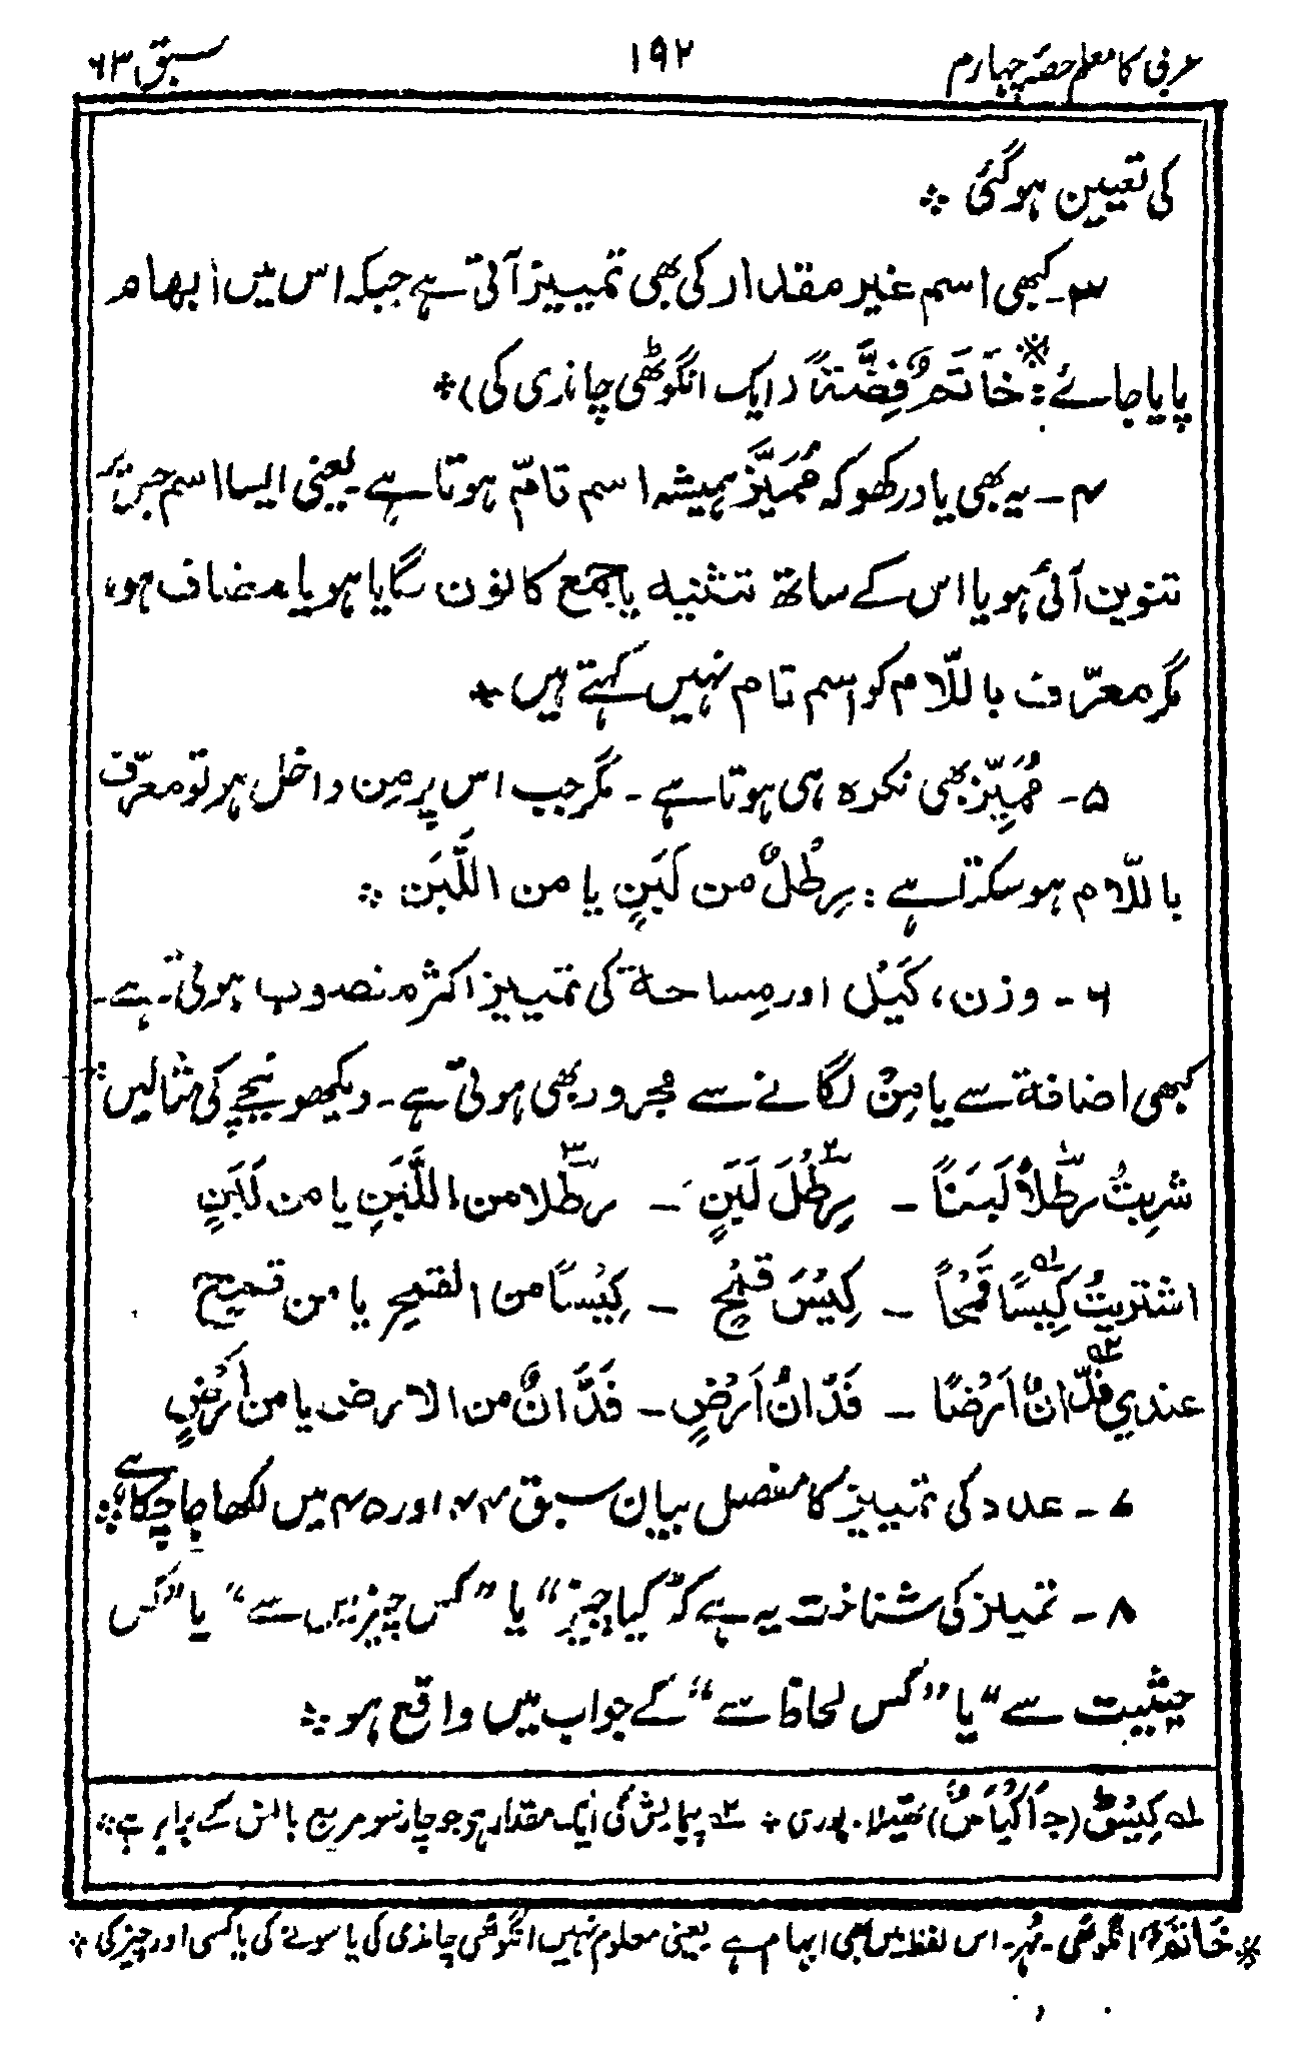 عربی کا معلم حصہ چہارم ۱۹۲ سبق ۶۳
کی تعیین ہو گئی ٭
۳۔ کبھی اسم غیر مقدار کی بھی تمییز آتی ہے جبکہ اس میں ابھام
پایا جائے : خَاتَمٌ※ فِضَّةً (ایک انگوٹھی چاندی کی) ٭
۴۔ یہ بھی یاد رکھو کہ مُمَیَّز ہمیشہ اسم تامّ ہوتا ہے۔ یعنی ایسا اسم جس پر
تنوین آئی ہو یا اس کے ساتھ تثنیہ یا جمع کا نون لگایا ہو یا مضاف ہو،
مگر معرّف باللّام کو اسم تام نہیں کہتے ہیں ٭
۵۔ مُمَیِّز بھی نکرہ ہی ہوتا ہے۔ مگر جب اس پر مِن داخل ہو تو معرّف
باللّام ہو سکتا ہے : رِطْلٌ من لَبَنٍ یا من اللَّبَن ٭
۶۔ وزن، کَیْل اور مِساحة کی تمییز اکثر منصوب ہوتی ہے۔
کبھی اضافة سے یا مِنْ لگانے سے مجرور بھی ہوتی ہے۔ دیکھو نیچے کی مثالیں :
شربتُ رطلاً لَبَنًا ۱ ۔ رِطْلَ لَبَنٍ ۲ ۔ رطلا من اللَّبَنِ یا من لَبَنٍ ۳
اشتریتُ کِیْسًا لہ قَمْحًا ۔ کِیْسَ قَمْحٍ ۔ کِیْسًا من القمحِ یا من قمحٍ
عندي فدّانٌ ۲ہ اَرْضًا ۔ فَدّانُ اَرْضٍ ۔ فَدَّانٌ من الارض یا من اَرْضٍ
۷۔ عدد کی تمییز کا مفصل بیان سبق ۴۴ اور ۴۵ میں لکھا جا چکا ہے ٭
۸۔ تمییز کی شناخت یہ ہے کہ ”کیا چیز“ یا ”کس چیز میں سے“ یا ”کس
حیثیت سے“ یا ”کس لحاظ سے“ کے جواب میں واقع ہو ٭
لہ کِیْسٌ (جـ اَکْیَاسٌ) تھیلا۔ بوری ٭ ۲ہ پیمایش کی ایک مقدار ہے جو چار سو مربع بالس کے برابر ہے ٭
※ خَاتَمٌ انگوٹھی۔ مُہر۔ اس لفظ میں بھی ابہام ہے یعنی معلوم نہیں انگوٹھی چاندی کی یا سونے کی یا کسی اور چیز کی ٭